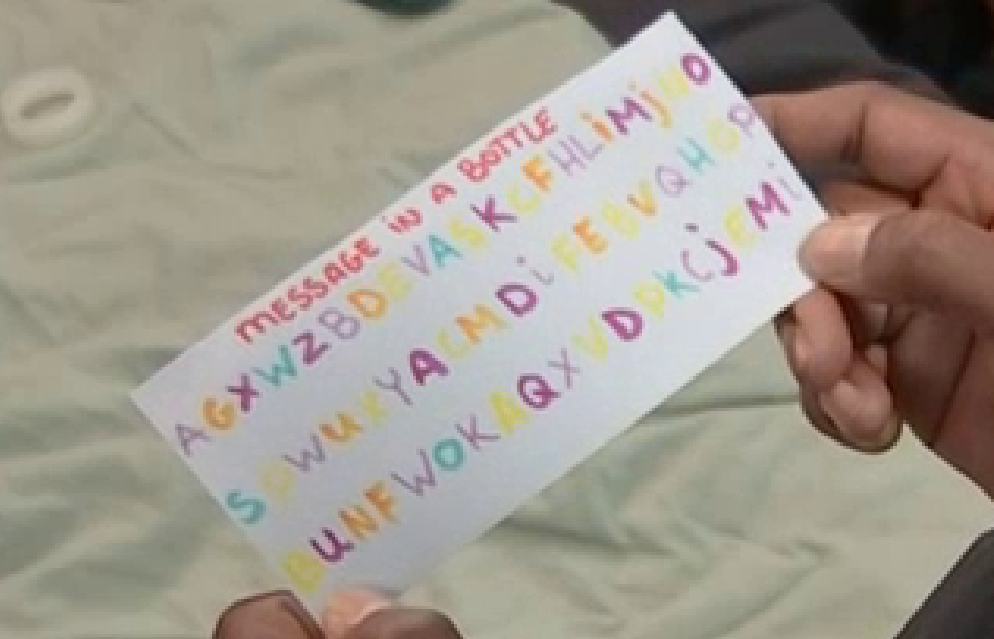 MESSAGE iN A BOTTLE
AGXWZBDEVASKCFHLiMjNO
SPWUXYACMDiFEBVQHGP
BUNFWOKAQXVDPKCjEMi